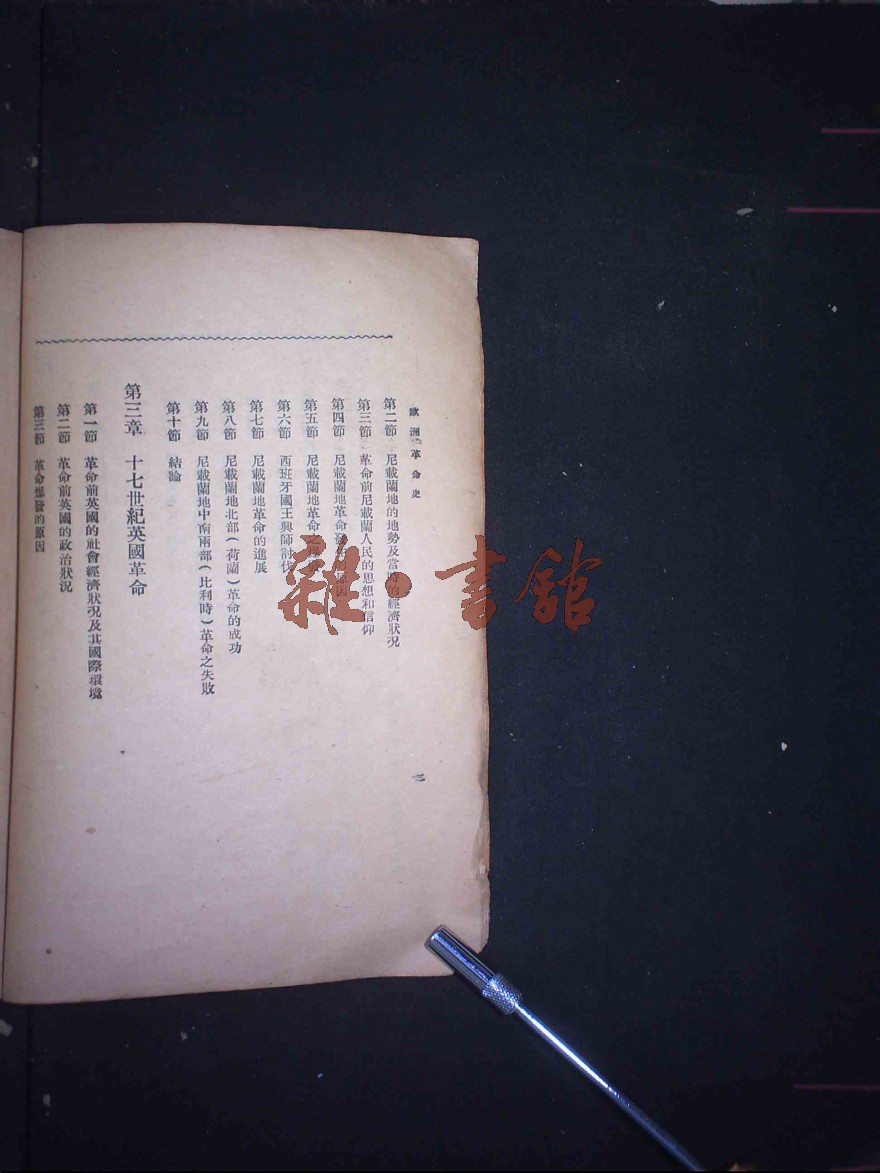 歐洲革命史
第二節 尼載蘭地的地勢及當時的經濟狀况
第三節 革命前尼載蘭人民的思想和信仰
第四節 尼載蘭地革命的原因
第五節 尼載蘭地革命之
第六節 西班牙國王興師討伐
第七節 尼載蘭地革命的進展
第八節 尼載蘭地北部(荷蘭)革命的成功
第九節 尼載蘭地中南兩部(比利時)革命之失敗
第十節 結論
第三章 十七世紀英國革命
第一節 革命前英國的社會經濟狀況及其國際環境
第二節 革命前英國的政治狀況
第三節 革命爆發的原因
二
雜·書舘